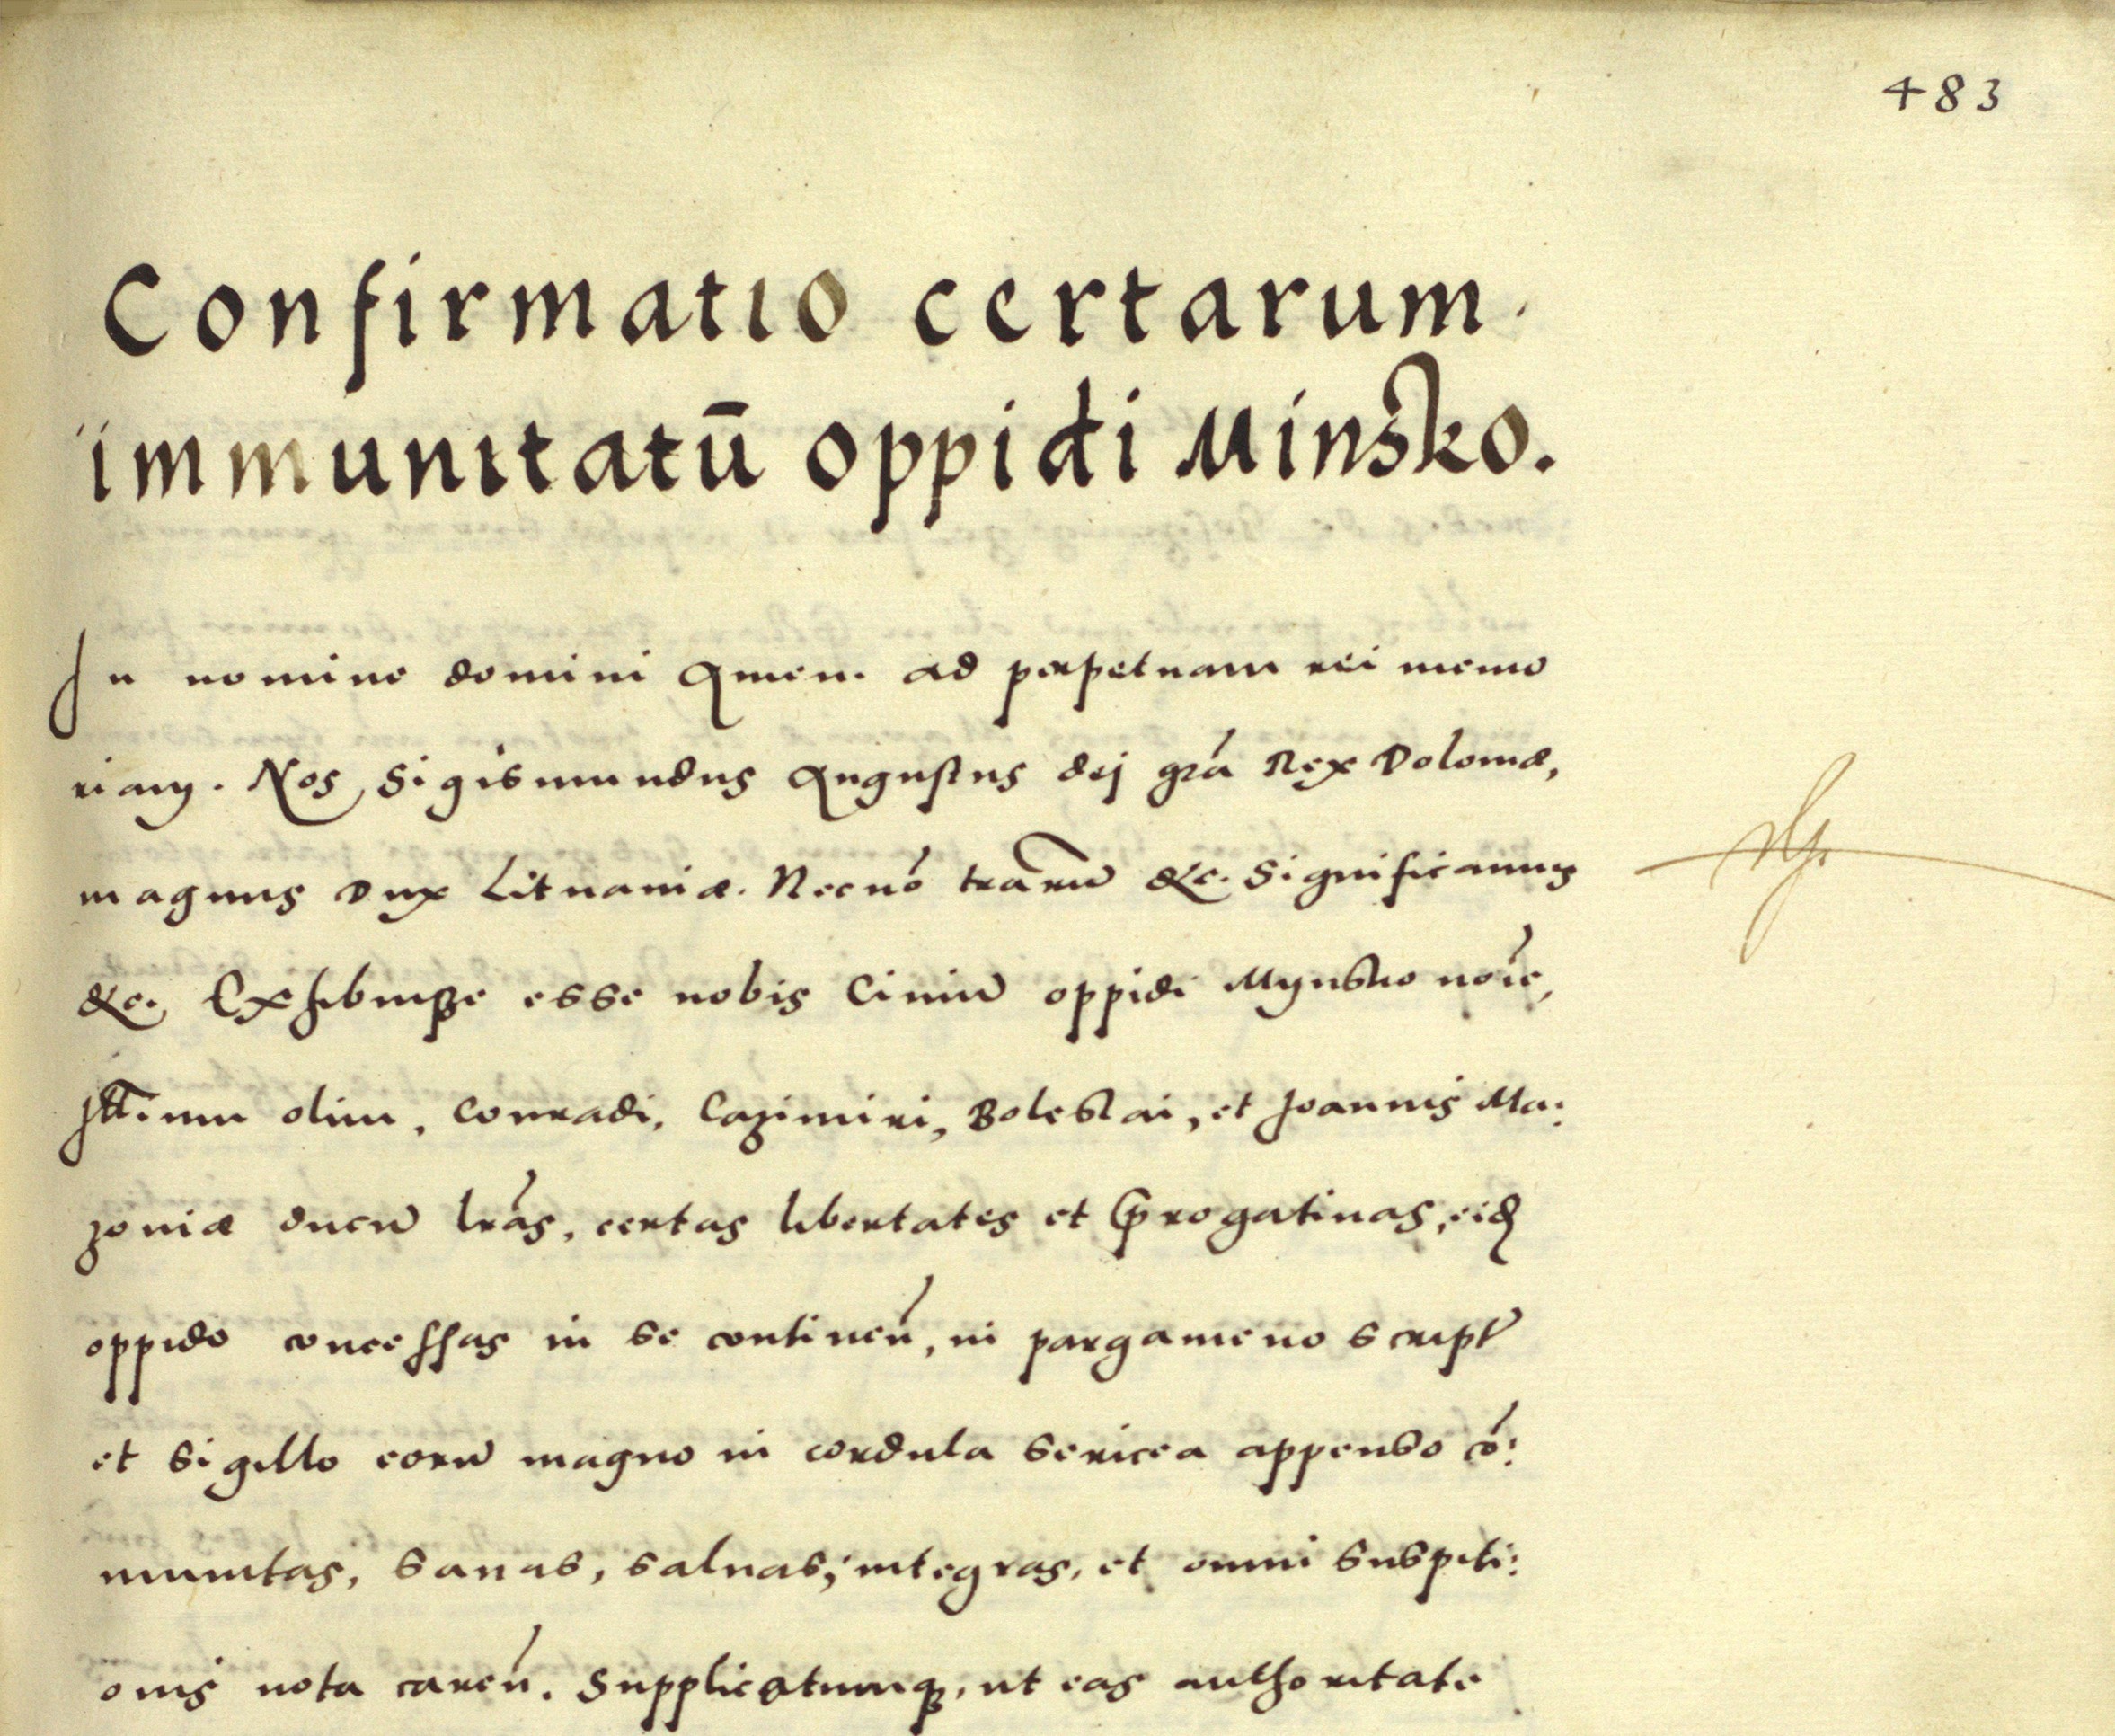 483
Confirmatio certarum
immunitatū oppidi Minsko.
In nomine domini Amen. ad perpetuam rei memo
riam. Nos Sigismundus Augustus dej gra Rex Poloniæ,
magnus Dux Lituaniæ. Necnō trarū &c. Significamus
&c. Exhibuisse esse nobis Civiū oppidi Mynsko noie,
olim, Conradi, Cazimiri, Boleslai, et Joannis Ma:
zoviæ ducū lras, certas libertates et prerogativas, eid
oppido concessas in se continen, in pargameno script
et sigillo eorū magno in cordula sericea appenso cō:
munitas, sanas, salvas, integras, et omni suspiti:
onis nota caren. Supplicatumq, ut eas authoritate